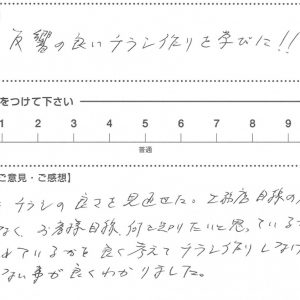 反響の良いチラシ作りを学びに!!
をつけて下さい
1 2 3 4 5 6 7 8 9
普通
ご意見・ご感想】
チラシの良さを見返せた。工務店目線の
なく、お客様目線、何を知りたいと思っている
れているかを良く考えてチラシ作りしなけ
ない事が良くわかりました。